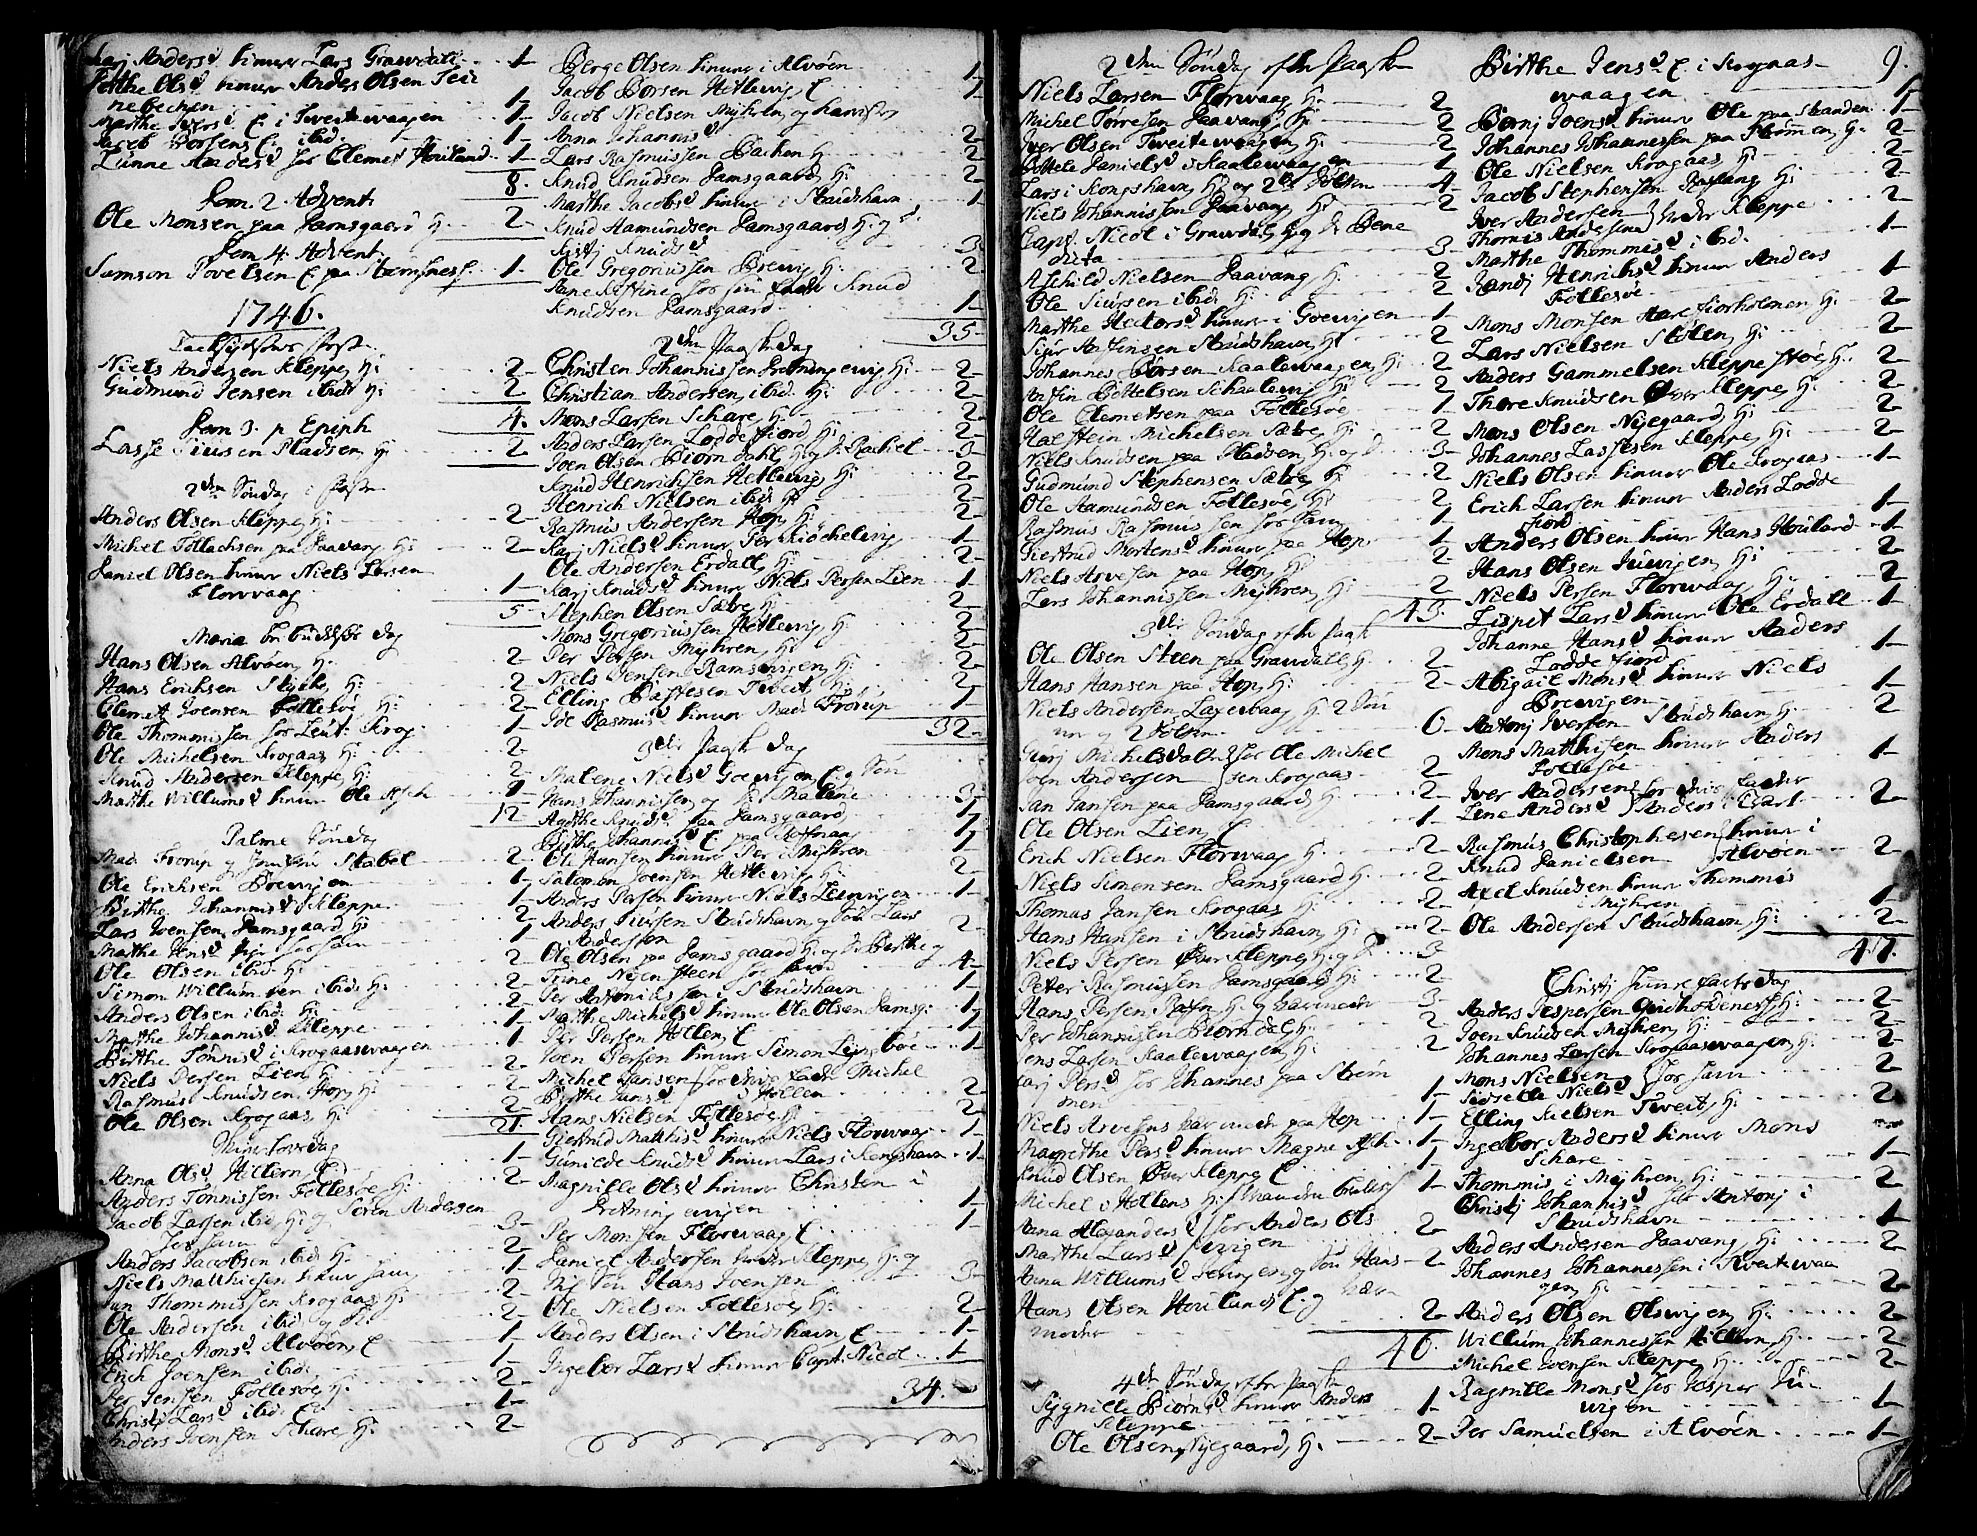 Karj Anders d hinur Lars Gravdal 1-
Olsd hinur Anders Olsen
nebechen 1-
Marthe Ivers d E i Tveitevaagen 1-
Jacob Borsen E ibid 1-
Zinne Anders d for Clemet Houland 1-
8.
Dom. 2 Advent.
Ole Monsen paa Damsgaard H. 2-
Dom. 4. Advent.
Samson Povelsen E paa 1-
1746.
Niels Andersen Kleppe, H: 2-
Gudmund Jensen ibid. H: 2-
4.
Dom 3. p Epiph
Lasse Siursen Pladsen, H: 2-
2den Søndag i Faste
Anders Olsen Kleppe, H: 2-
Michel Tollachsen paa Gaavang H: 2-
Daniel Olsen hinur Niels Larsen
Florvaag 1-
5
Maria be budelse dag
Hans Olsen Alvøen, H. 2-
Hans Erichsen H: 2-
Clemet Joensen Follesøe H: 2-
Ole Thommissen for Leut: Krog 1-
Ole Michelsen Krogaas H: 2-
Knud Andersen Kleppe, H: 2-
Marthe Willums d hinur Ole Ask 1
12-
Palme Søndag
Mad. Frorup og Stabel 2-
Ole Erichsen Brevigen 1-
Birthe Johannis d Kleppe 2-
Lars Joensen, Damsgaard, H: 1-
Marthe Jens d
Ole Olsen ibid. H: 2-
Simon Willumsen ibid. H. 2-
Anders Olsen ibid. H: 2-
Marthe Johannis d Kleppe 1-
Birthe Tønnis d i Krogaasvaagen 1-
Niels Persen Lien, H: 2-
Rasmus Knudsen, Hop, H: 2-
Ole Olsen Krogaas, H: 2-
21.
Skiertorsdag
Anna Ols d Hillern E 1-
Anders Tønnissen Follesøe, H: 2-
Jacob Larsen ibid. H: og Søren Andersen
3-
Anders Jacobsen ibid H: 2-
Niels Matthiesen hinur 1-
Jan Thommissen Krogaas, H: 2-
Ole Andersen ibid. og 2-
Birthe Mons d Alvøen, E 1-
Erich Joensen ibid. 1-
Per Jensen Follesøe, H: 2-
Christj Lars d ibid. E 1-
Anders Joensen Schare, H: 2-
Børge Olsen hinur i Alvøen 1-
Jacob Børsen Hetlevig E 1
Jacob Nielsen Mÿhren, og
Anna Johannis d 2-
Lars Rasmussen Backen H: 2-
Knud Knudsen Damsgaard, H: 2-
Marthe Jacobs d hinur i Strudshavn 1-
Knud Aamundsen Damsgaard H: og
Kistj Knuds d 3.
Ole Gregoriussen Brevig H: 2-
Jane Kistine for sin Fader Knud
Knudsen Damsgaard 1-
35-
2den Paaske dag
Christen Johannissen Drotningevig H: 2-
Christian Andersen, ibid. H: 2-
Mons Larsen Schare, H: 2-
Anders Larsen Loddefiord, H: 2-
Joen Olsen Biørndahl, H. og D. Rachel 3-
Knud Henrichsen Hetlevig H: 2-
Henrich Nielsen ibid. H: 2-
Rasmus Andersen Hop, H: 2-
Karj Niels d hinur Per Kiøchelvig 1-
Ole Andersen Erdall, H: 2-
Karj Knuds d hinur Niels Persen Lien 1-
Stephen Olsen Sætre, H: 2-
Mons Gregoriussen Hetlevig, H: 2-
Per Persen Mÿhren, H: 2-
Niels Jensen Ramsvigen, H: 2-
Elling Bastesen Tveit, H: 2-
Ide Rasmus d hinur Mad: Frorup 1-
32-
3die Paaske dag
Malene Niels d Goevigen, E. og Søn
Hans Johannissen og D. Malene 3-
Agothe Knuds d paa Damsgaard 1-
Birthe Johannis d E. paa 1-
Ole Hansen hinur Per i Mÿhren 1
Salomon Joensen Hetlevig, H: 2-
Anders Persen hinur Niels Leervigen 1-
Anders Siursen Strudshavn, og Søn Lars
Andersen 2-
Ole Olsen paa Damsgaard H: og D. Birthe og
Trine Nÿensteen for 4-
Per Antoniussen i Strudshavn 1-
Marthe Michels d hinur Ole Olsen Damsg: 1-
Per Persen Hollen, E 1-
Joen Persen hinur Simon Lÿngboe 1-
Michel Hansen } for deris fader Michel
Birthe Hans d } i Hollen 2-
Hans Nielsen Follesøe, H: 2-
Giertrud Matthis d hinur Niels Florvaag 1-
Gunilde Knuds d hinur Lars i Kongshavn 1-
Magnille Ols d hinur Christen i
Drotningevigen 1-
Per Monsen Florvaag E 1-
Daniel Andersen Under Kleppe, H: og
Sti Søn Hans Joensen 3-
Ole Nielsen Follesøe, H: 2-
Anders Olsen i Strudshavn, E 1-
Ingebor Lars d hinur Capt. Nicol 1
34.
2den Søndag efter Paaske
Niels Larsen Florvaag, H: 2
Michel Torresen Gaavang, H: 2
Iver Olsen Tveitevaagen, H: 2
Bottele Daniels d i Skaalevaagen 1
Lars i Kongshavn, H: og 2de Døttre 4-
Niels Johannissen Gaavang H: 2
Capt. Nicol i Gravdal, H. og D. Bene
dicta 3-
Aschild Nielsen Gaavang, H: 2
Ole Siursen ibid. H: 2
Marthe Hectors d hinur i Goevigen 1
Siur Anfinsen Strudshavn, H: 2
Johannes Børsen Skaalevaagen, H: 2
Anfin Bottelsen Schaalevig H: 2
Ole Clemetsen paa Follesøe 1
Halstein Michelsen Sætre, H: 2
Niels Knudsen paa Pladsen, H. og D 3-
Gudmund Stephensen Sætre, H: 2
Ole Aamundsen Follesøe, H: 2
Rasmus Rasmussen for 1
Giertrud Mortens d hinur paa Hop 1-
Niels Arvesen paa Hop, H: 2
Lars Johannissen Mÿhren, H: 2
43.
3die Søndag efter Paaske
Ole Olsen Steen paa Gravdall, H: 2
Hans Hansen paa Hop, H: 2-
Niels Andersen Laxevaag H. 2 Søn
ner og 2 Døttre 6-
Gurj Michelsdatter } for Ole Michel
Joen Andersen } sen Krogaas 2
Jan Jansen paa Damsgaard H: 2
Ole Olsen Lien, E 1
Erich Nielsen Florvaag, H: 2
Niels Simonsen Damsgaard, H. 2
Thomas Jansen Krogaas, H: 2
Hans Hansen i Strudshavn, H: 2
Niels Persen Øvre Kleppe, H. og D 3
Peter Rasmussen Damsgaard H: 2
Hans Persen H. og 3
Per Johannissen Biørndal, H: 2
Jens Larsen Skaalevaagen, H: 2
Karj Pers d for Johannes paa Strøm
men 1
Niels Arvesens paa Hop 1-
Magrethe Pers d hinur Magne Ask 1
Knud Olsen Øvre Kleppe E 1
Michel i Hollens 1-
Anna Alexanders d } for Anders Ols
Marthe Lars d } vigen 2
Anna Willums d og Søn Hans 2
Hans Olsen Houland, E. og
moder 2
40.
4de Søndag efter Paaske
Sÿgnille Biørns d hinur Anders
Kleppe 1-
Ole Olsen, Nÿegaard, H: 2-
9.
Birthe Jens d E i Krogaas
vaagen 1
Børnj Joens d hinur Ole paa Straanden 1-
Johannes Johannessen paa Strømen, H: 2-
Ole Nielsen Krogaas, H: 2-
Jacob Stephensen H: 2-
Iver Andersen } Under Kleppe
Thomis Andersen } 2
Marthe Thommis d ibid. 1-
Randj Henrichs d hinur Anders
Follesøe 1-
Mons Monsen Harefiorholmen, H: 2-
Lars Nielsen Stølen, H: 2
Anders Gammelsen Kleppestøe, H: 2
Thore Knudsen Øvre Kleppe, H: 2
Mons Olsen Nÿegaard, H: 2
Johannes Lassesen Kleppe, H: 2-
Niels Olsen hinur Ole Krogaas 1-
Erich Larsen hinur Anders Lodde
fiord 1
Anders Olsen hinur Hans Houland 1-
Hans Olsen Juvigen, H: 2
Niels Persen Florvaag, H: 2
Lispet Lars d hinur Ole Erdall 1-
Johanne Hans d hinur Anders
Loddefiord 1
Abigail Mons d hinur Niels
Brevigen 1
Antonj Iversen Strudshavn, H: 2
Mons Matthisen hinur Anders
Follesøe 1
Iver Anders } for deris fader
Lene Anders d } Anders i 2
Rasmus Christophersen } hinur i
Knud Danielsen } Alvøen 2
Axel Knudsen hinur Thommis
i Mÿhren 1
Ole Andersen Strudshavn, H: 2
47.
Christj Himmelfarts dag
Anders Jespersen H: 2-
Joen Knudsen Mÿhren, H: 2-
Johannes Larsen Krogaasvaagen, H: 2
Mons Nielsen }
Sidselle Niels d } 2
Elling Nielsen Tveit, H: 2
Ingebor Anders d hinur Mons
Schare 1-
Thommis i Mÿhren, H: 2
Christj Johannis d for Antonj i
Strudshavn 1
Anders Andersen Gaavang, H: 2
Johannes Johannessen i Tveitevaa
gen, H: 2
Anders Olsen Olsvigen, H: 2
Willum Johannessen Hillern, H: 2
Michel Joensen Kleppe, H: 2-
Ragnille Mons d for Jesper Ju
vigen 1
Per Samuelsen i Alvøen 1-